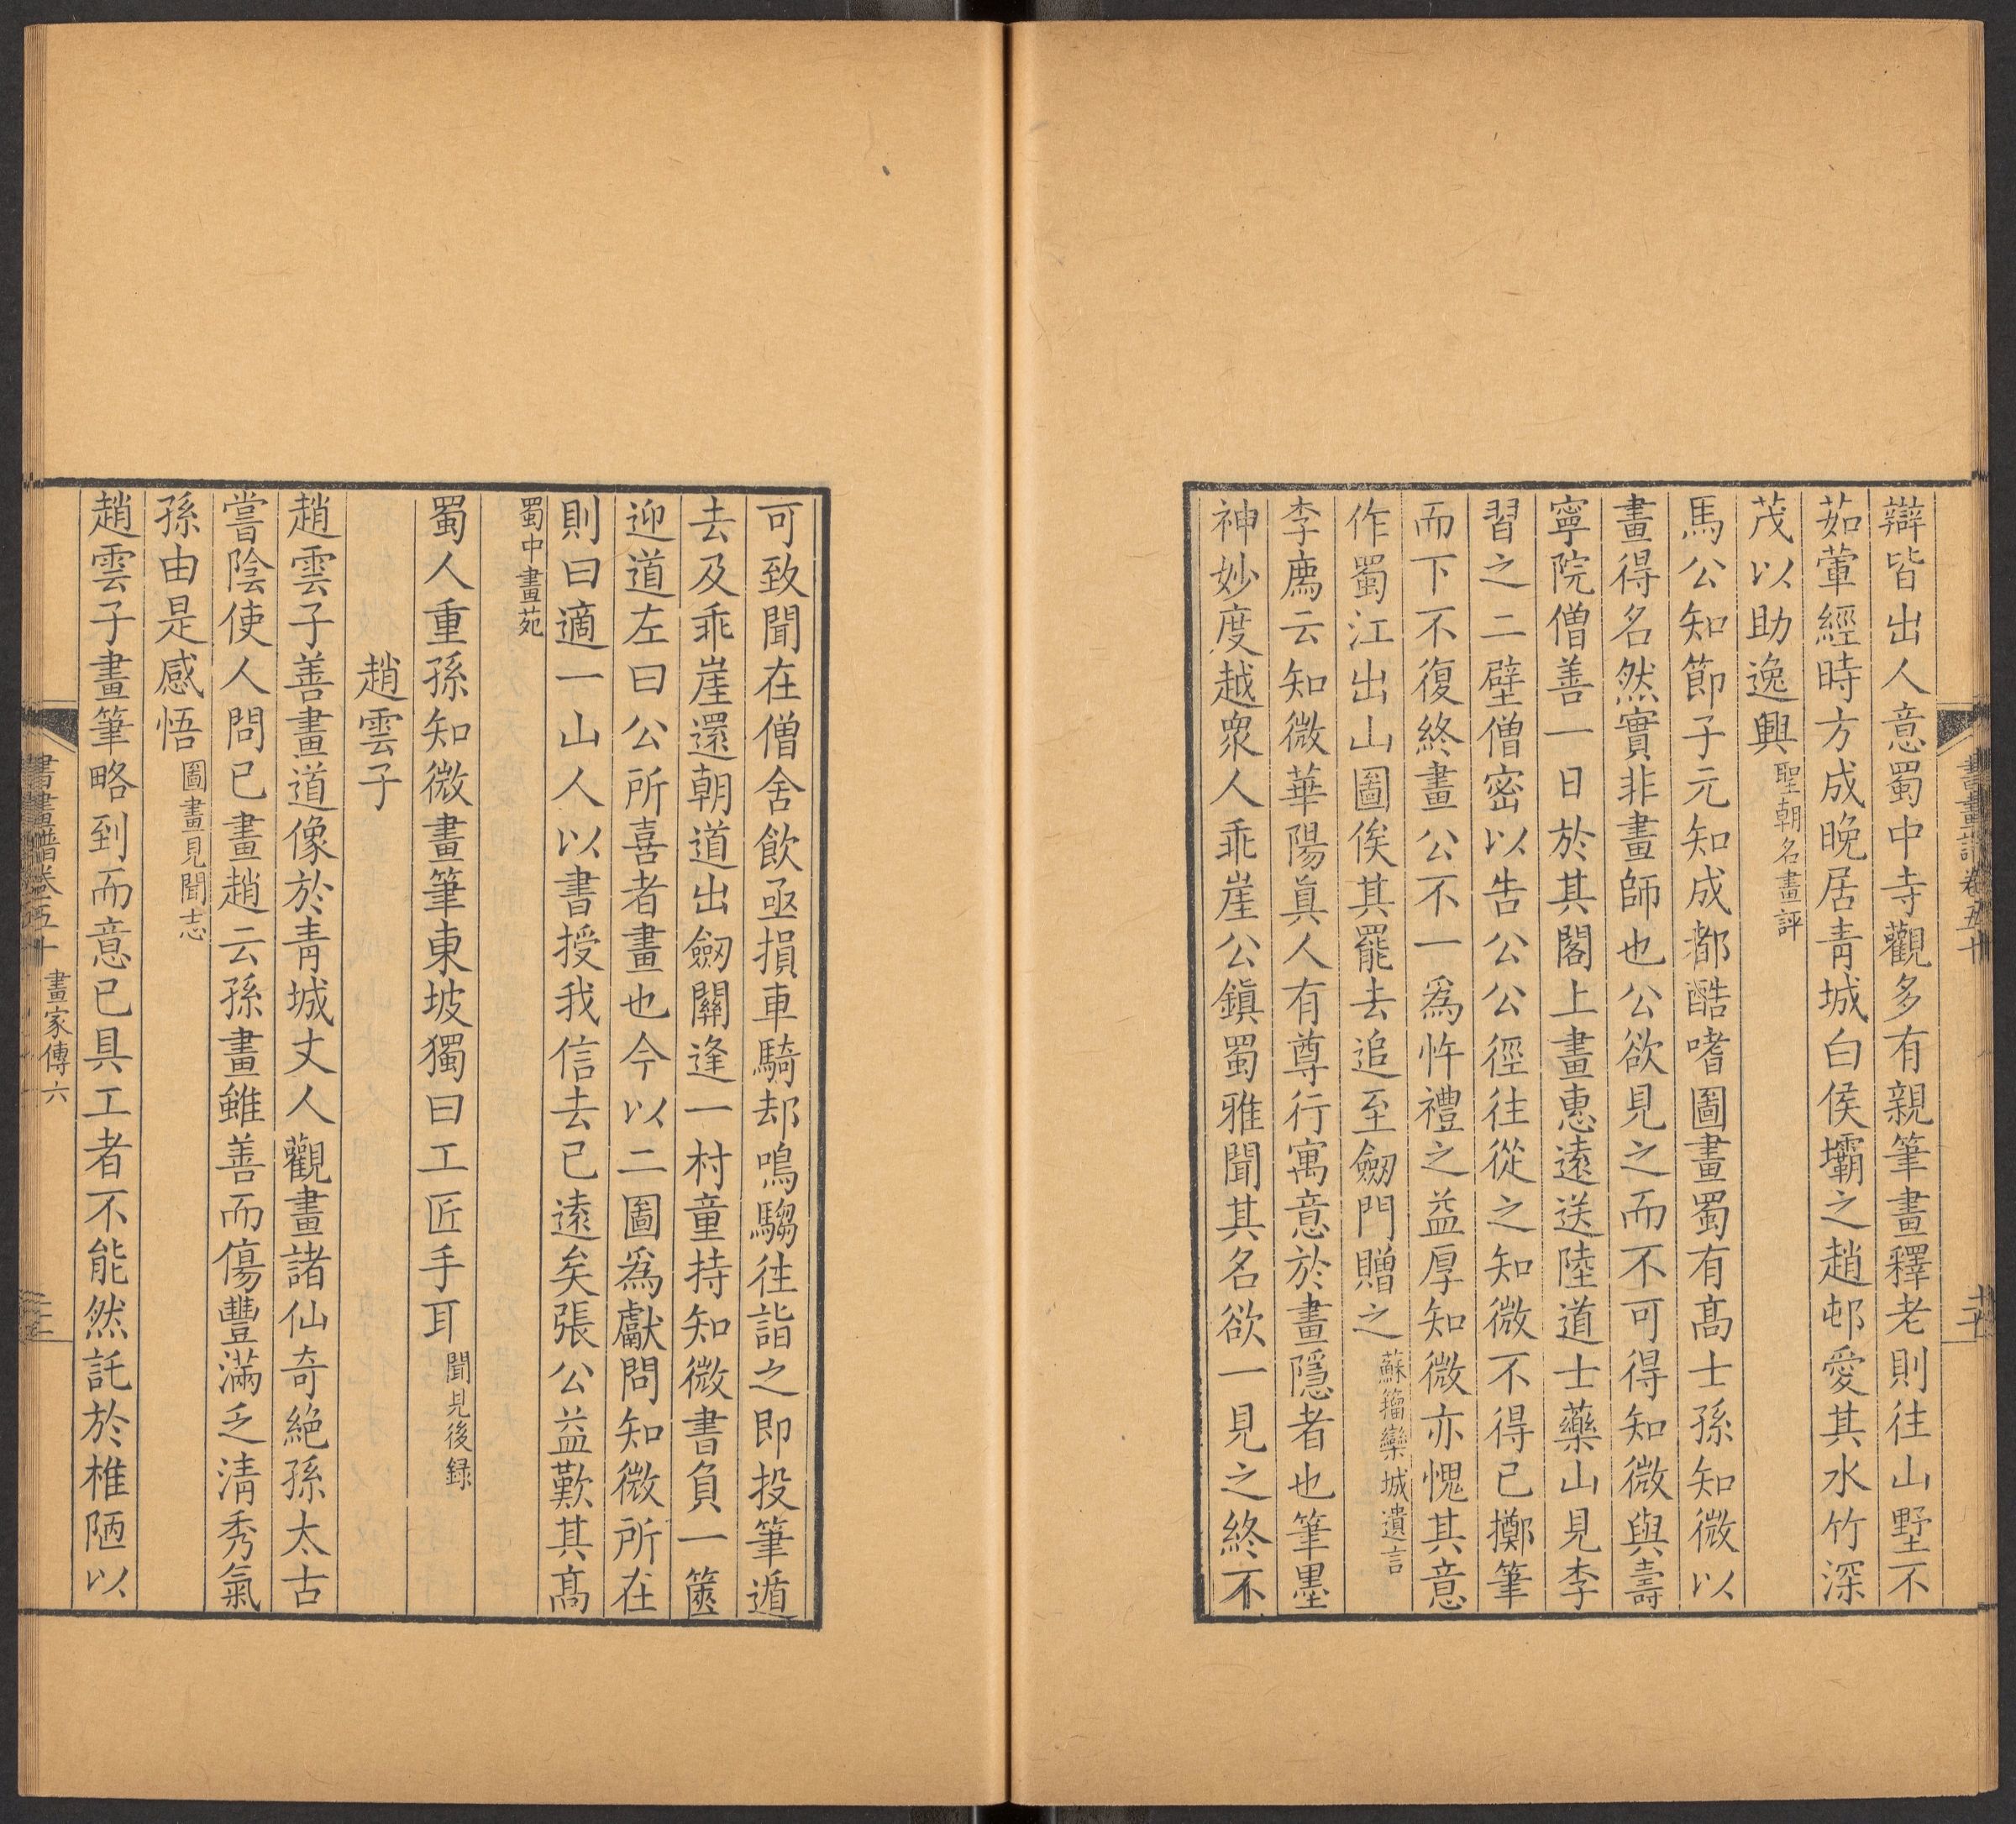 辯皆出人意蜀中寺觀多有親筆畫釋老則往山墅不
茹葷經時方成晚居青城白侯壩之趙邨愛其水竹深
茂以助逸興聖朝名畫評
馬公知節子元知成都酷嗜圖畫蜀有高士孫知微以
畫得名然實非畫師也公欲見之而不可得知微與壽
寧院僧善一日於其閣上畫惠遠送陸道士藥山見李
習之二壁僧密以告公公徑往從之知微不得已擲筆
而下不復終畫公不一爲忤禮之益厚知微亦愧其意
作蜀江出山圖俟其罷去追至劒門贈之蘇籀欒城遺言
李廌云知微華陽眞人有尊行寓意於畫隱者也筆墨
神妙度越衆人乖崖公鎮蜀雅聞其名欲一見之終不
可致聞在僧舍飲亟損車騎却鳴騶往詣之即投筆遁
去及乖崖還朝道出劒關逢一村童持知微書負一篋
迎道左曰公所喜者畫也今以二圖爲獻問知微所在
則曰適一山人以書授我信去已遠矣張公益歎其高
蜀中畫苑
蜀人重孫知微畫筆東坡獨曰工匠手耳聞見後録
趙雲子
趙雲子善畫道像於青城丈人觀畫諸仙奇絕孫太古
嘗陰使人問已畫趙云孫畫雖善而傷豐滿乏清秀氣
孫由是感悟圖畫見聞志
趙雲子畫筆略到而意已具工者不能然託於椎陋以
書畫譜卷五十 畫家傳六